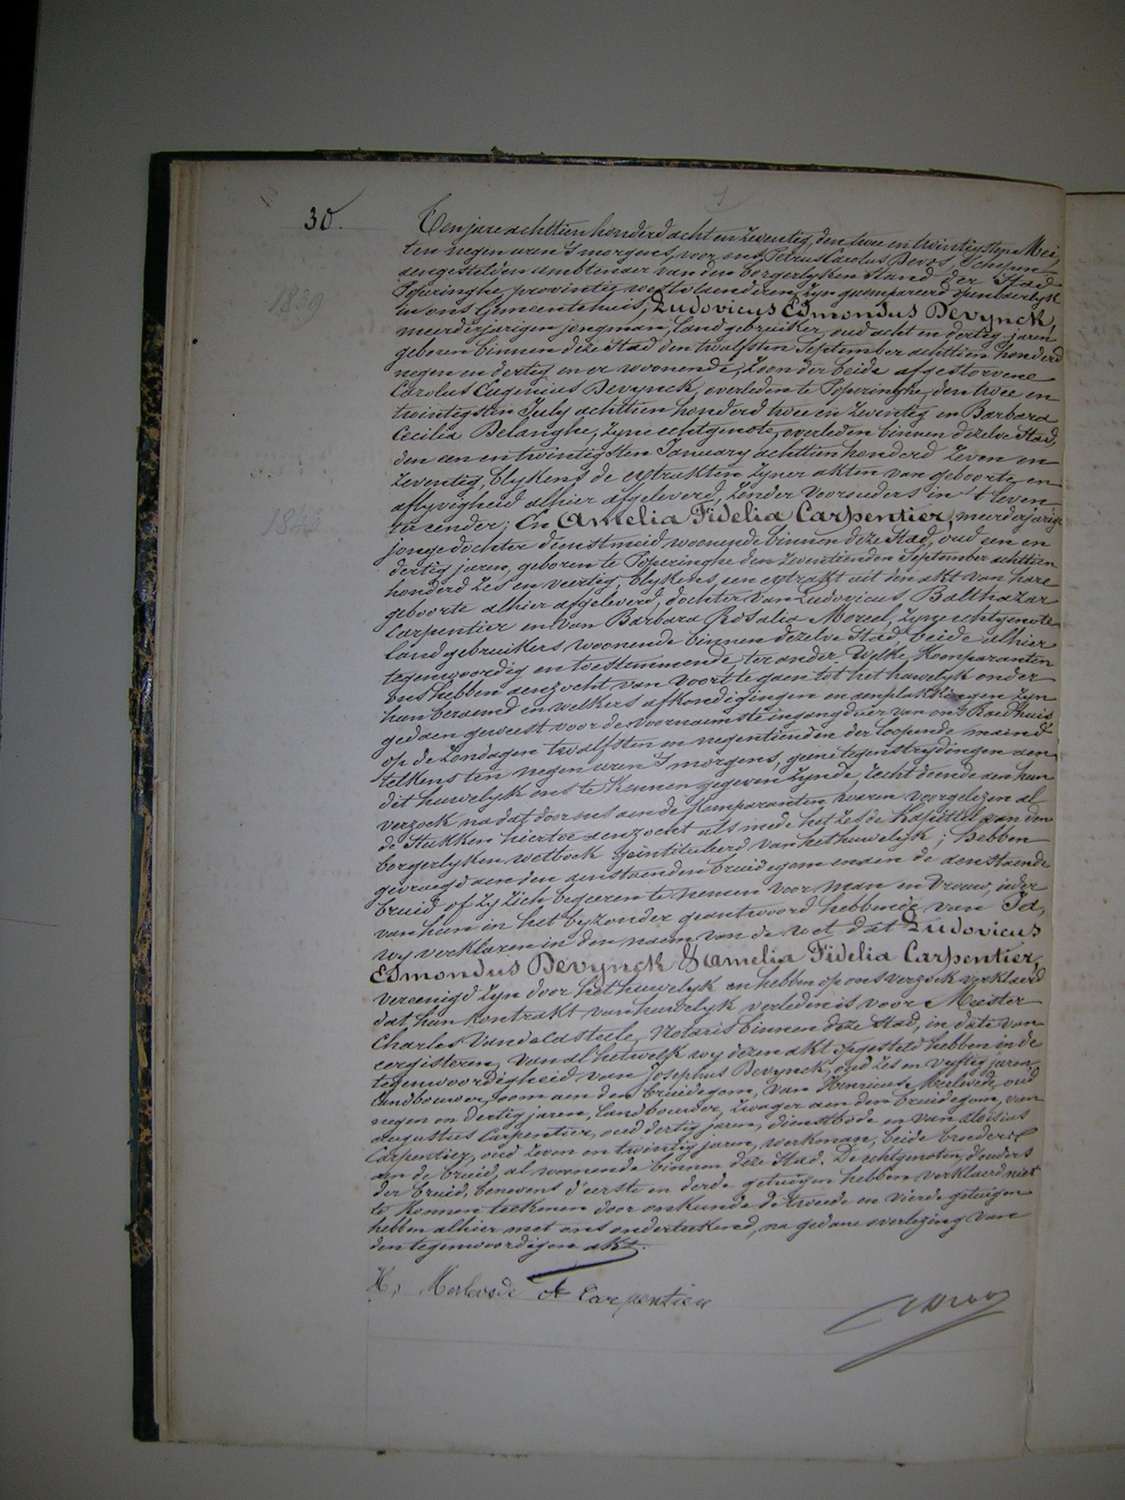 30.
Ten jare achttien honderd acht en zeventig, den twee en twintigsten Mei,
ten negen uren 's morgens, voor ons, Petrus Carolus Devos, Schepen
aengestelden ambtenaer van den borgerlyken stand der Stad
Poperinghe, provintie westvlaenderen, zyn gekompareerd openbaerlyk
1839
in ons Gemeentehuis, Ludovicus Edmondus Devynck,
meerderjarigen jongman, landgebruiker, oud acht en dertig jaren
geboren binnen deze Stad den twalfsten September achttien honderd
negen en dertig en er woonende, zoon der beide afgestorvene
Carolus Eugenius Devynck, overleden te Poperinghe, den twee en
twintigsten July achttien honderd twee en zeventig en Barbara
Cecilia Belanghe, zyne echtgenote, overleden binnen dezelve Stad,
den een en twintigsten January achttien honderd zeven en
zeventig, blykens de extrakten zyner akten van geboorte en
aflyvigheid alhier afgeleverd, zonder voorouders in 't leven
ter eender; En Amelia Fidelia Carpentier, meerderjarige
jongedochter dienstmeid woonende binnen deze Stad, oud een en
dertig jaren, geboren te Poperinghe den zeventienden September achttien
honderd zes en veertig, blykens een extrakt uit den akt van hare
geboorte alhier afgeleverd, dochter van Ludovicus Balthazar
Carpentier en van Barbara Rosalia Moreel, zyne echtgenote
landgebruikers woonende binnen dezelve Stad, beide alhier
tegenwoordig en toestemmende, ter ander. Welke Komparanten
ons hebben aenzocht van voort te gaen tot het huwelyk onder
hun beraemd en welkers afkondigingen en aenplakkingen zyn
gedaen geweest voor de voornaemste ingangdeur van ons Raedhuis
op de zondagen twalfsten en negentienden der loopende maend
telkens ten negen uren 's morgens, geene tegenstrydingen aen
dit huwelyk ons te kennen gegeven zynde, recht doende aen hun
verzoek na dat door ons aen de Komparanten waren voorgelezen al
de stukken hiertoe aenzocht als mede het zesde kapittel van den
borgerlyken wetboek geintituleerd van het huwelyk; hebben
gevraegd aen den aenstaenden bruidegom en aen de aenstaende
bruid of zy zich begeeren te nemen voor man en vrouw, ieder
van hun in het byzonder geantwoord hebbende van Ja,
wy verklaren in den naem van de wet, dat Ludovicus
Edmondus Devynck & Amelia Fidelia Carpentier,
vereenigd zyn door het huwelyk en hebben op ons verzoek verklaerd
dat hun kontrakt van huwelyk verleden is voor Meester
Charles Vandecasteele, Notaris binnen deze Stad, in date van
eergisteren, van al hetwelk wy dezen akt opgesteld hebben in de
tegenwoordigheid van Josephus Devynck, oud zes en vyftig jaren,
landbouwer, oom aen den bruidegom, van Henricus Merlevede, oud
negen en dertig jaren, landbouwer, zwager aen den bruidegom, van
Augustus Carpentier, oud dertig jaren, dienstbode en van Aloisius
Carpentier, oud zeven en twintig jaren, werkman, beide broeders
aen de bruid, al woonende binnen deze Stad. De echtgenoten, d'ouders
der bruid, benevens d'eerste en derde getuigen hebben verklaerd niet
te konnen teekenen door onkunde de tweede en vierde getuigen
hebben alhier met ons onderteekend, na gedane overlezing van
den tegenwoordigen akt.
H. Merlevede A Carpentier